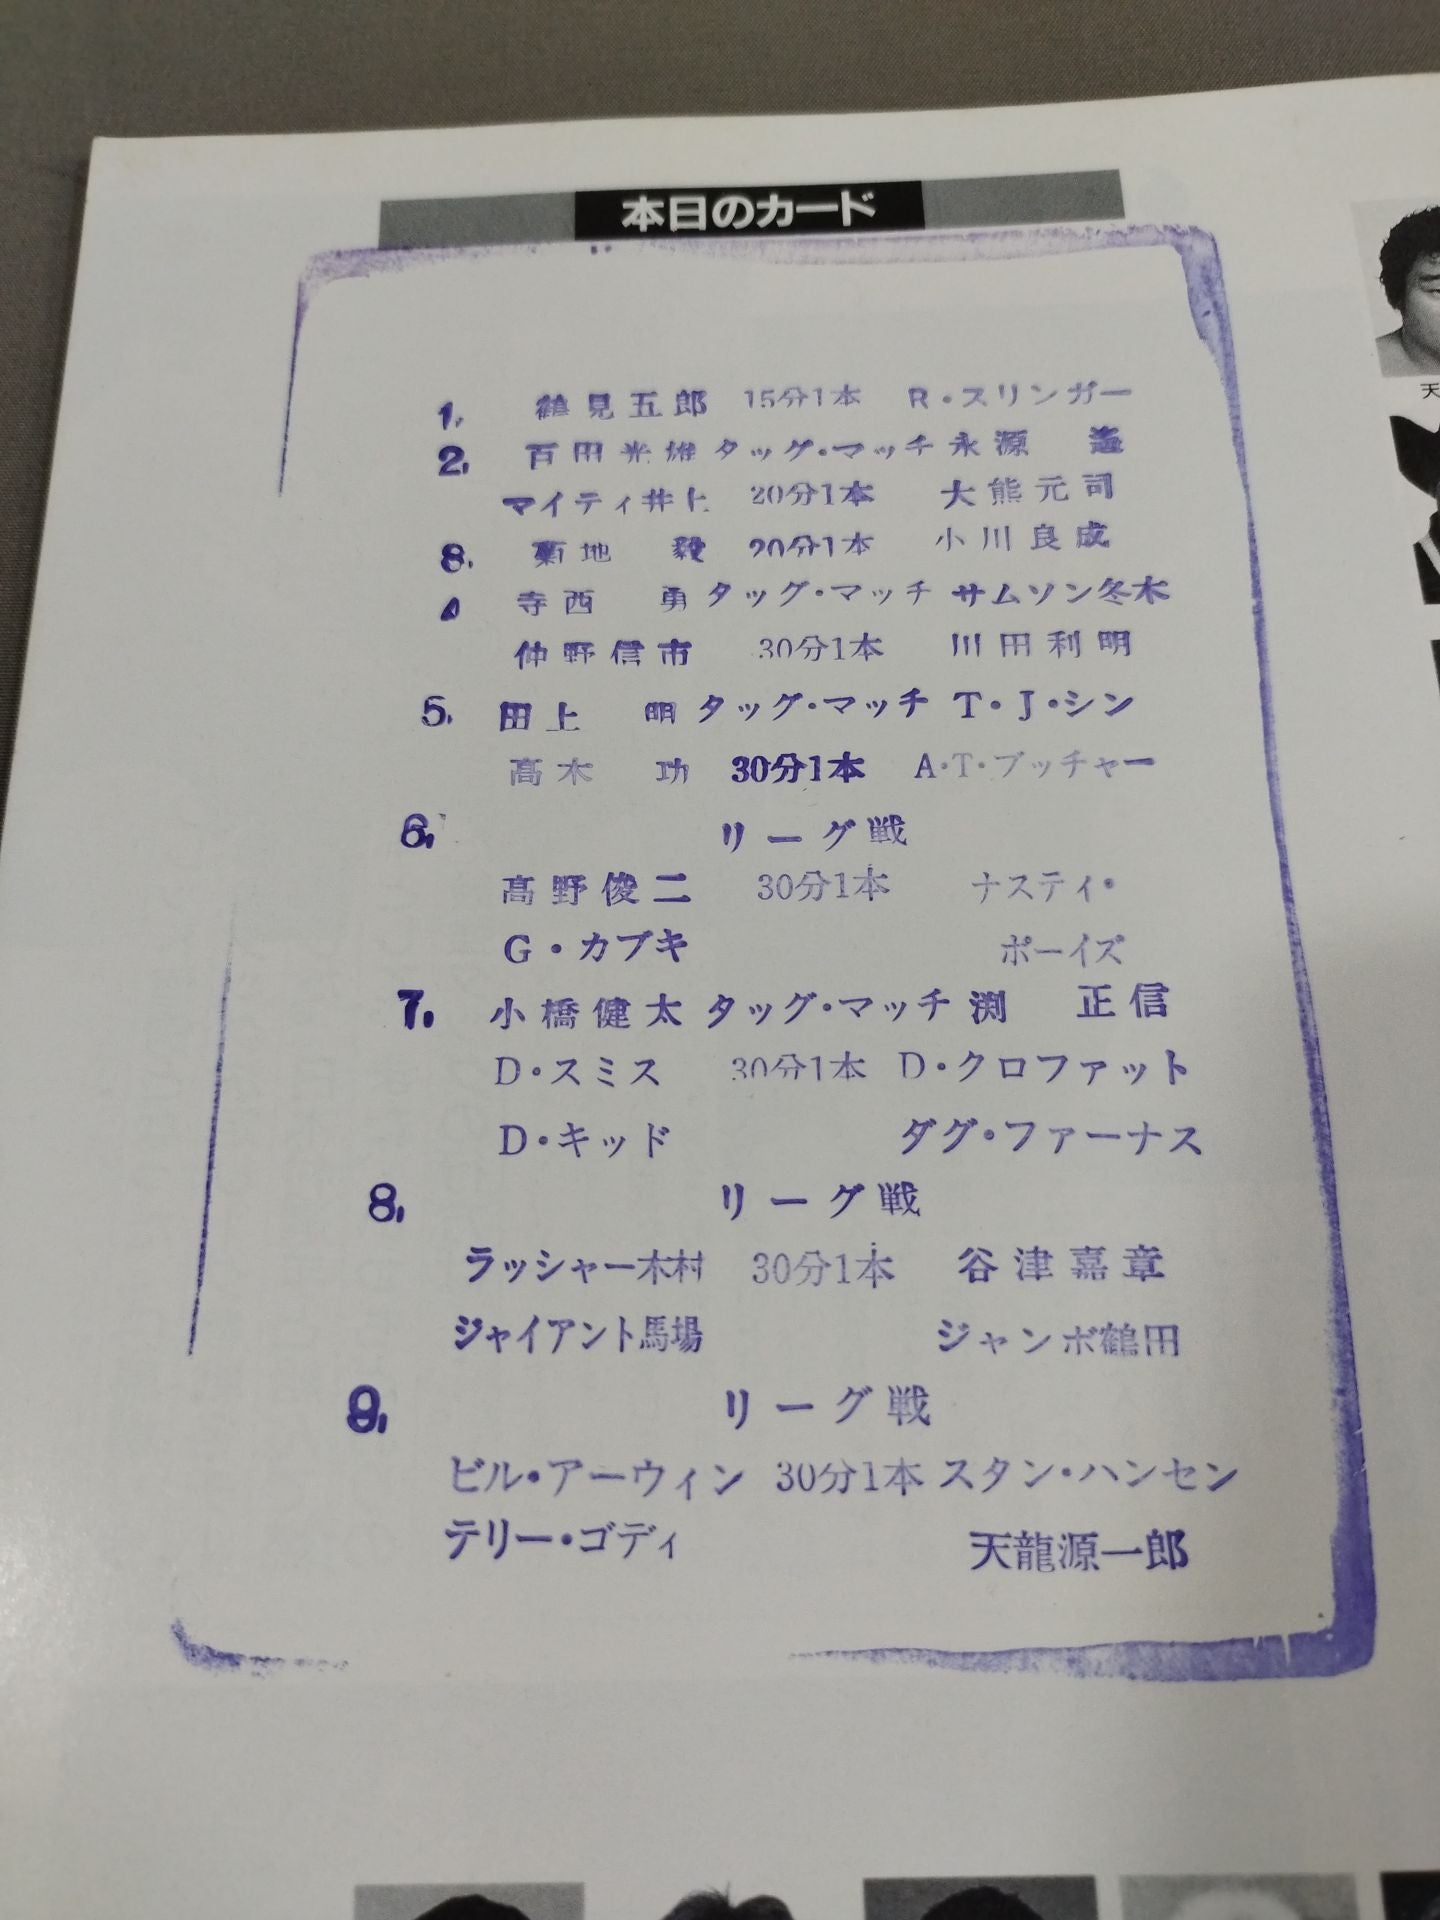 本日のカード
1. 鶴見五郎 15分1本 R・スリンガー
2. 百田光雄 タッグ・マッチ 永源 遙
マイティ井上 20分1本 大熊元司
3. 菊地 毅 20分1本 小川良成
4 寺西 勇 タッグ・マッチ サムソン冬木
仲野信市 30分1本 川田利明
5. 田上 明 タッグ・マッチ T・J・シン
高木 功 30分1本 A・T・ブッチャー
6. リーグ戦
高野俊二 30分1本 ナスティ・
G・カブキ ボーイズ
7. 小橋健太 タッグ・マッチ 渕 正信
D・スミス 30分1本 D・クロファット
D・キッド ダグ・ファーナス
8. リーグ戦
ラッシャー木村 30分1本 谷津嘉章
ジャイアント馬場 ジャンボ鶴田
9. リーグ戦
ビル・アーウィン 30分1本 スタン・ハンセン
テリー・ゴディ 天龍源一郎
天